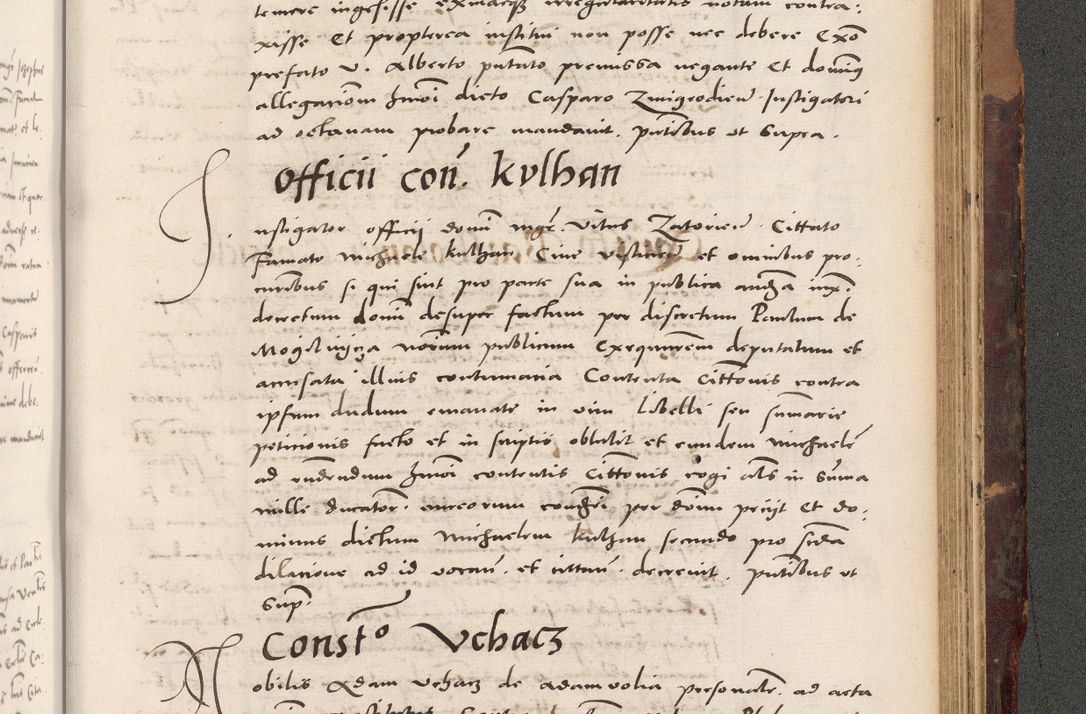 temere ingesisse exindeq irregularitatis notam contra:
xisse Et propterea institui non posse nec debere Exo
prefato v. Alberto putato premissa negante Et dominus
allegationem hmoi dicto Casparo Zmigrodien Instigatori
ad octavam probare mandavit. pntibus ut supra.
Officii con. kulhan
Instigator officii domini mgr. Vitus Zatorien. Cittato
Famato Michaele kulhan Cive vislicien et omnibus pro:
curibus si qui sint pro parte sua in publica audia iuxa
decretum domini desuper factum per discretum Paulum de
Mogilnycza notarium publicum Exequutorem deputatum et
accusata illius contumacia Contenta Cittonis contra
ipsum dudum emanate in vim Libelli seu summarie
peticionis facto et in scriptis obtulit et eundem Michaele
ad rndendum hmoi contentis Cittonis cogi als in summa
mille ducator. aureorum condemni per dominum peciit Et do:
minus dictum Michaelem kulhan secundo pro scda
dilacione ad id vocan. et cittan. decrevit. pntibus ut
sup.
Const o Vchacz
Nobilis Adam Vchacz de adamvolia personaliter ad acta